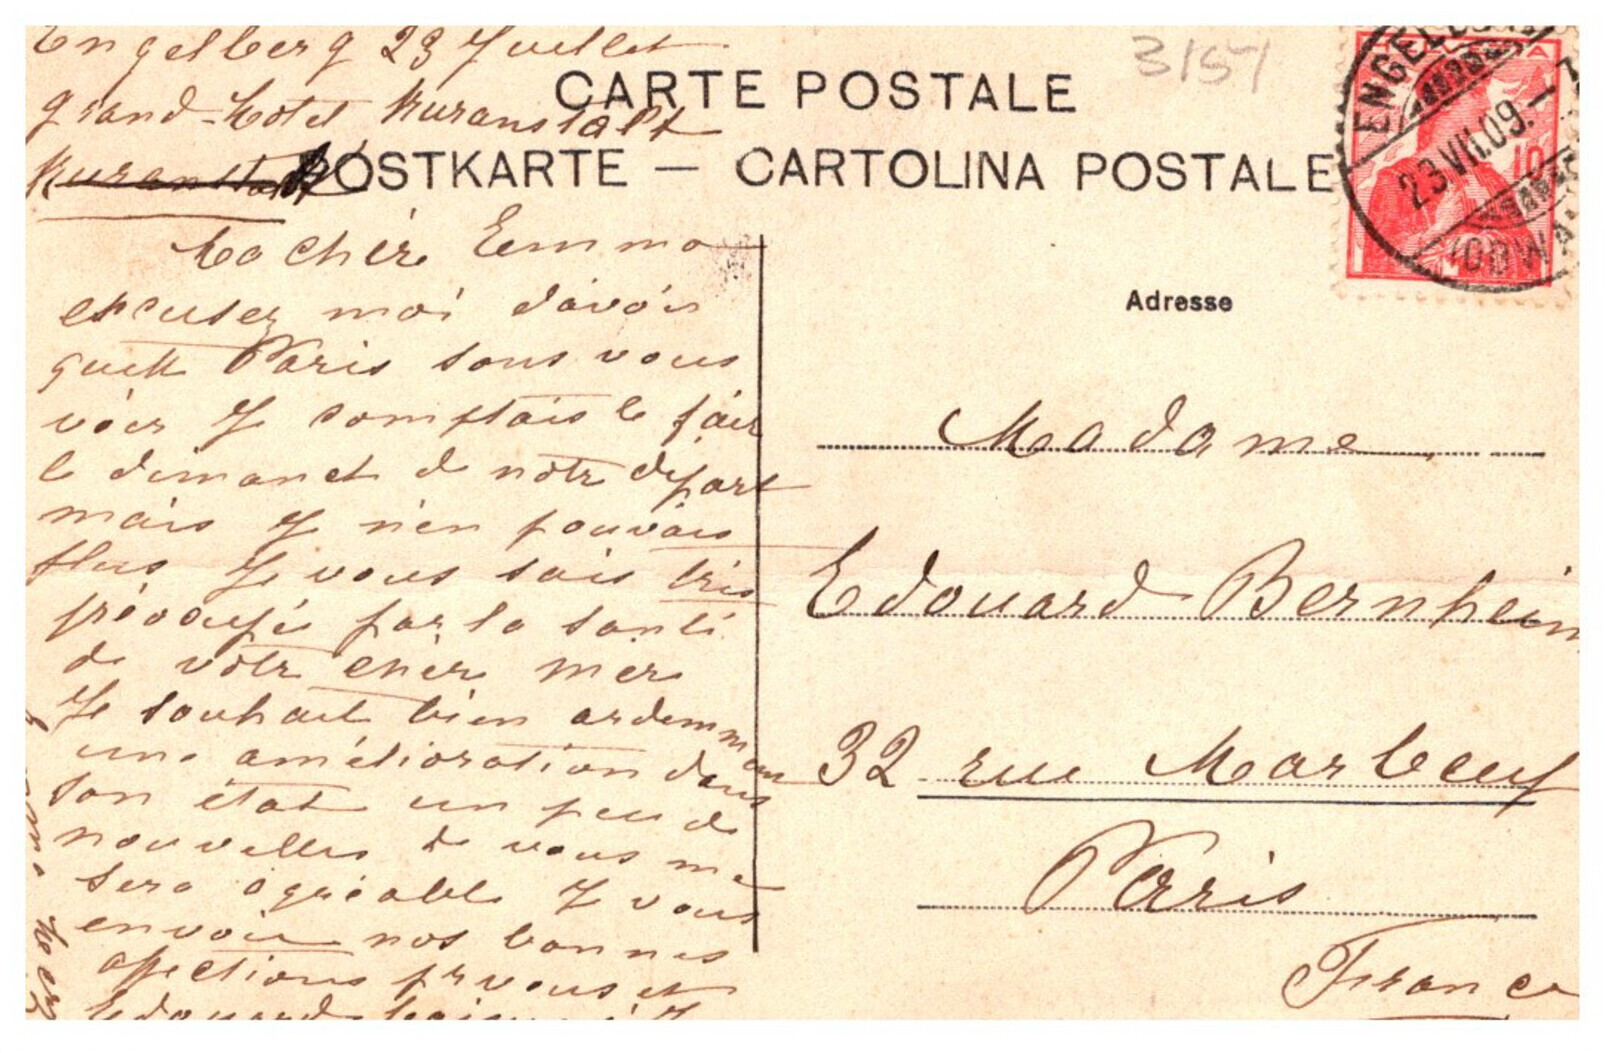 Engelberg 23 Juillet
grand-Hotel Kuranstalt
Kuranstalt
CARTE POSTALE
POSTKARTE — CARTOLINA POSTALE
3151
ENGELBERG
23.VII.09.
(OBWALD
HELVETIA
10
Ma chère Emma
excusez moi d'avoir
quitt Paris sans vous
voir Je comptais le fair
le dimanch de notre départ
mais Je n'en pouvais
plus Je vous sais très
préocupée par la santé
de votr chèr mère
Je souhait bien ardemman
une amélioration dans
son état un peu de
nouvelles de vous me
sera agréable Je vous
envoie nos bonnes
afections pr vous et
Edouard
Adresse
Madame
Edouard Bernheim
32 rue Marbeuf
Paris
France